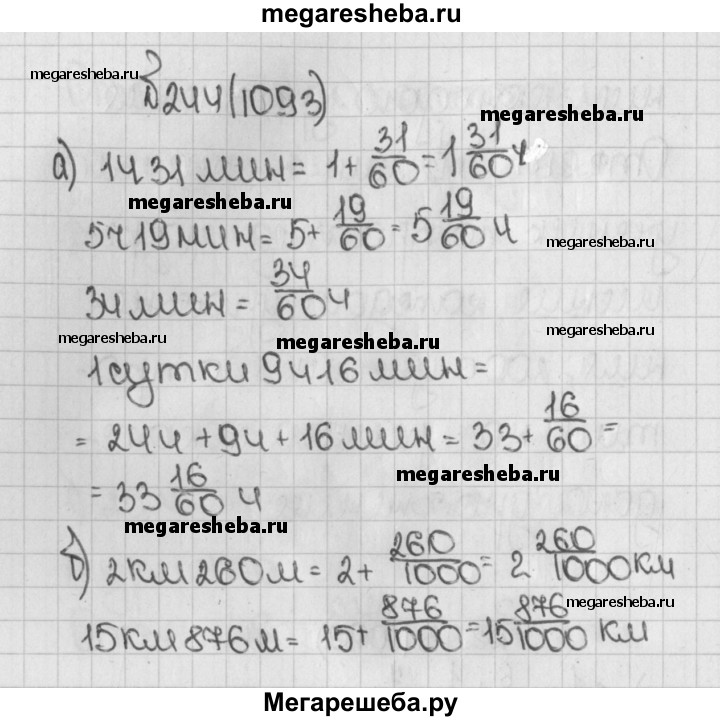 megaresheba.ru
megaresheba.ru
№244(1093)
megaresheba.ru
а) 1ч 31 мин = 1 + 31/60 = 1 31/60 ч
megaresheba.ru
5ч 19 мин = 5 + 19/60 = 5 19/60 ч
megaresheba.ru
34 мин = 34/60 ч
megaresheba.ru
megaresheba.ru
1 сутки 9ч 16 мин =
= 24ч + 9ч + 16 мин = 33 + 16/60 =
megaresheba.ru
= 33 16/60 ч
megaresheba.ru
б) 2км 260м = 2 + 260/1000 = 2 260/1000 км
megaresheba.ru
15км 876м = 15 + 876/1000 = 15 876/1000 км
Мегарешеба.ру